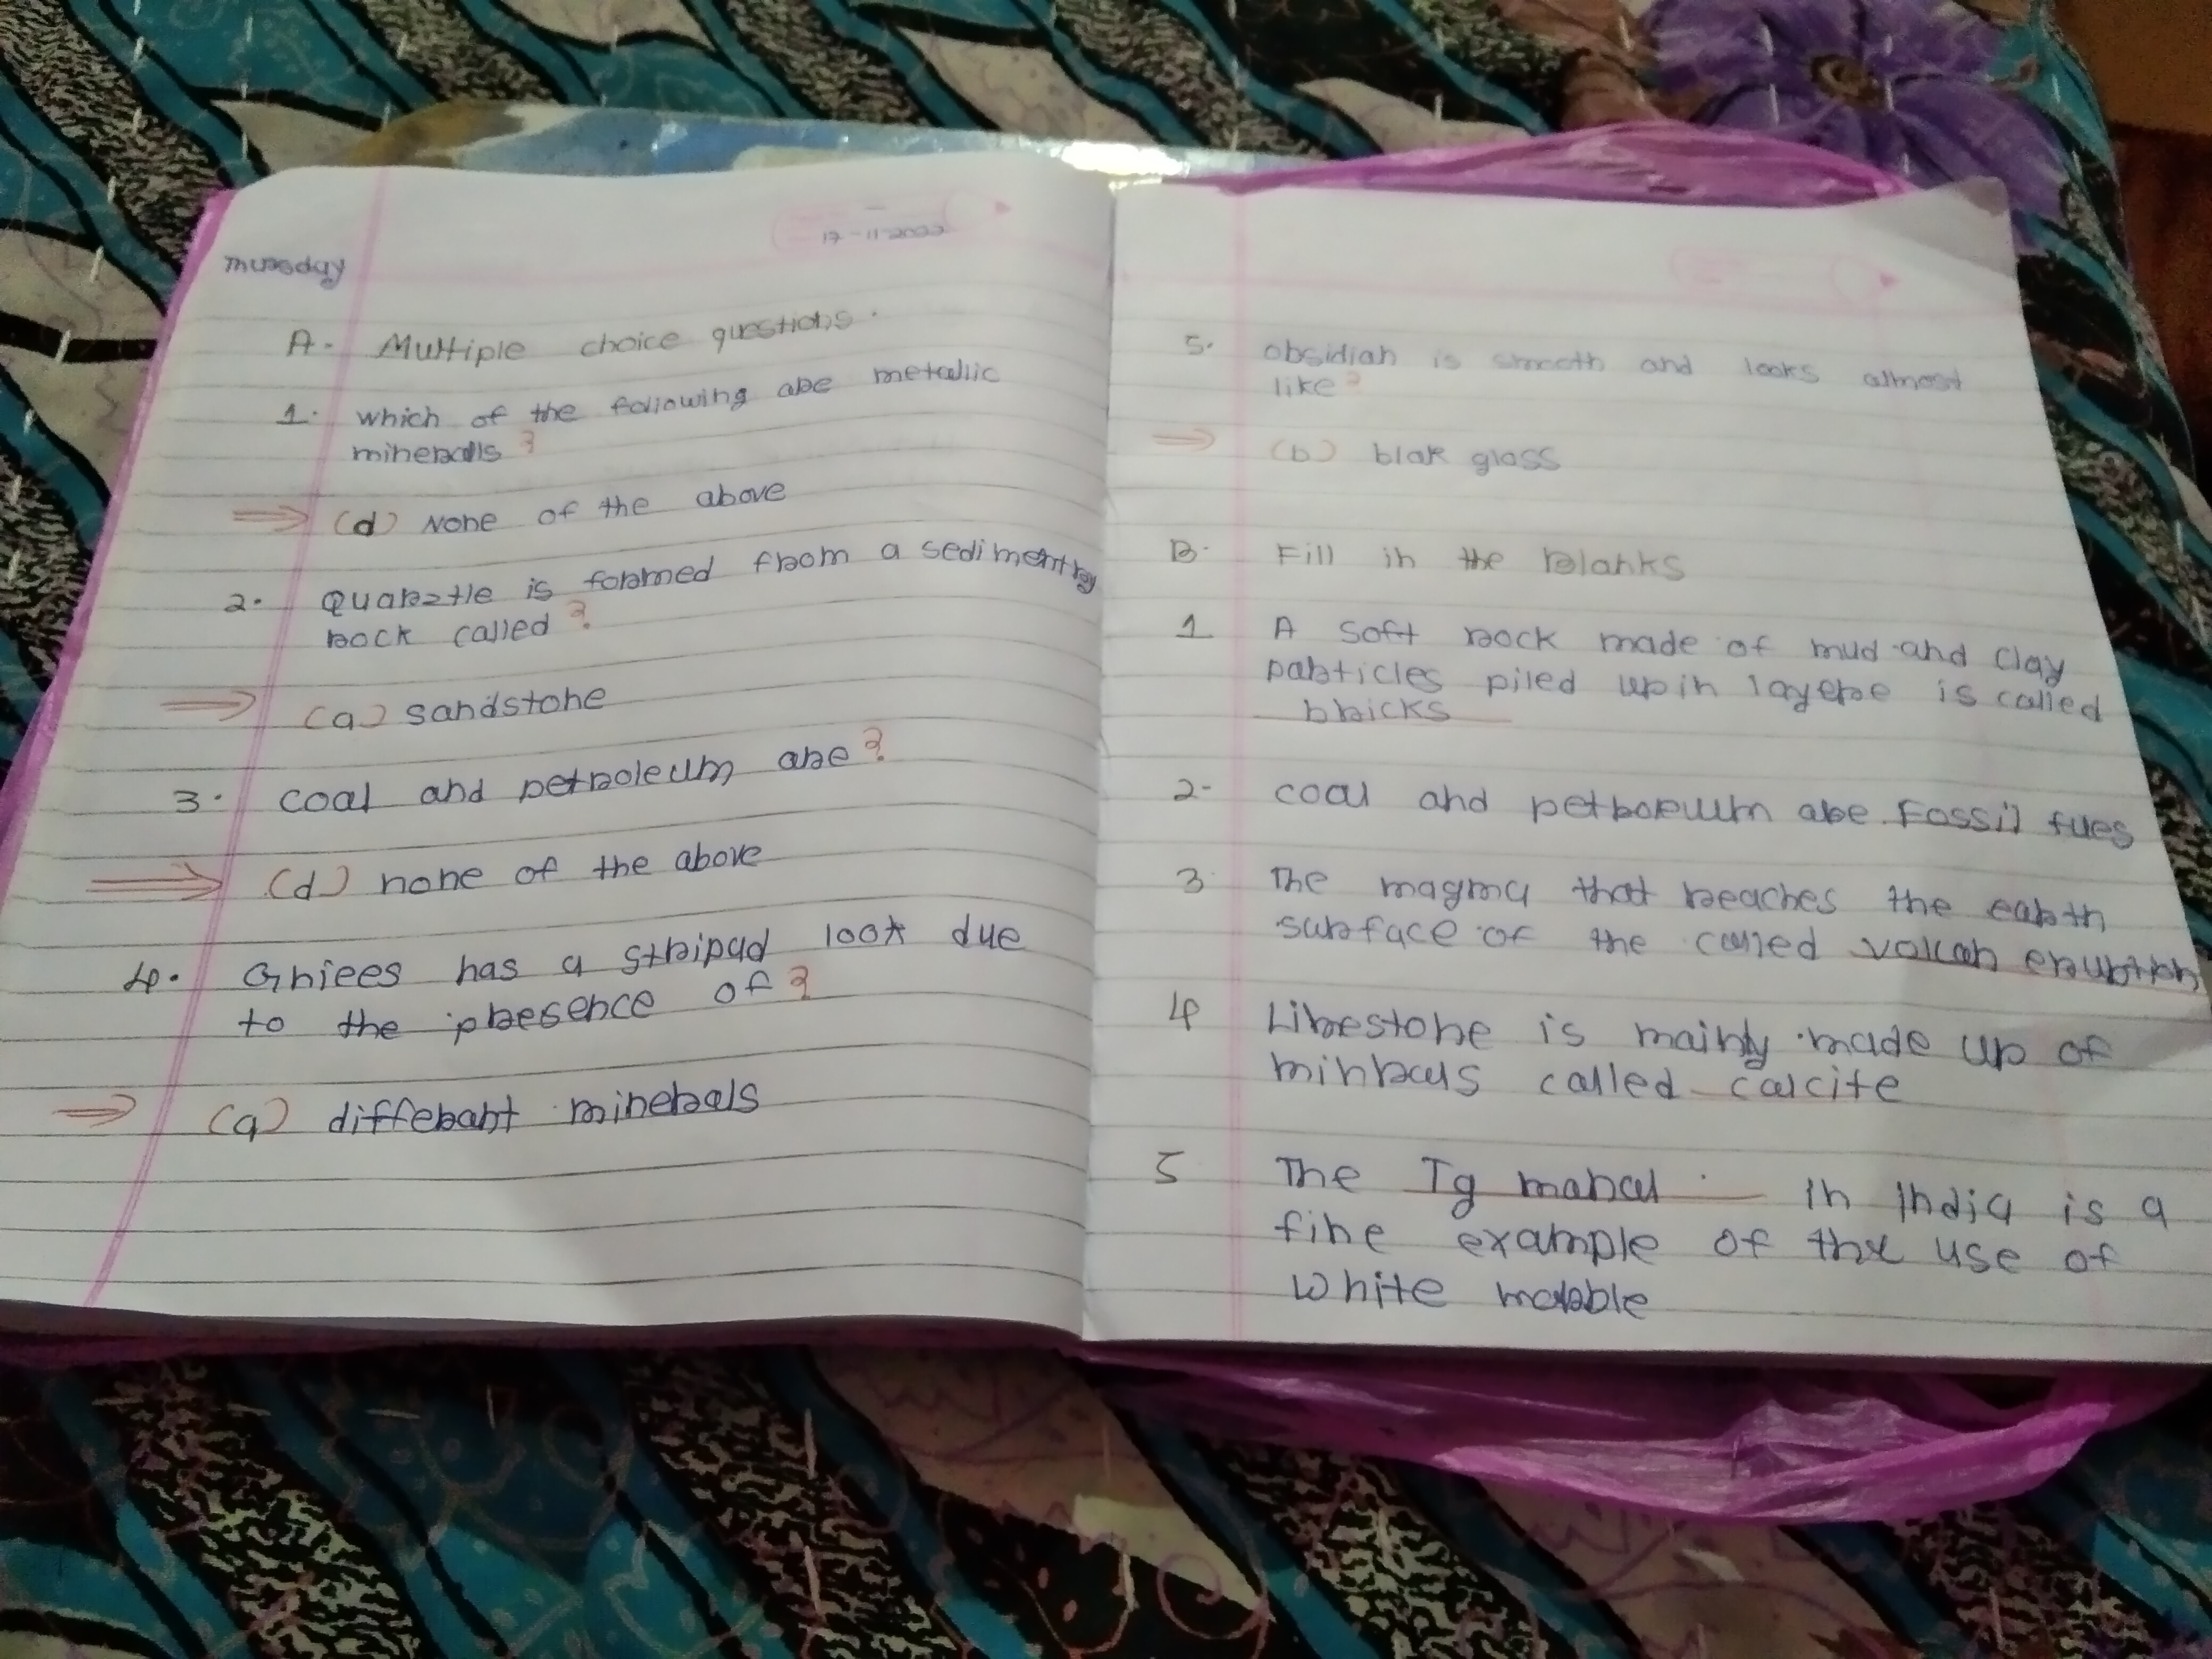 Thursday
17-11-2022
A. Multiple choice questions.
1. which of the following are metallic
mineralls ?
(d) None of the above
2. Quarztle is formed from a sedimentry
rock called ?
(a) sandstone
3. coal and petroleum are ?
(d) none of the above
4. Gniees has a stripud look due
to the presence of ?
(a) differant minerals
5. obsidian is smooth and looks almost
like ?
(b) blak glass
B. Fill in the blanks
1 A soft rock made of mud and clay
particles piled up in layere is called
bricks
2- coal and are Fossil fues
3 The magma that reaches the earth
surface of the called volcan eruption
4 Limestone is mainly made up of
called calcite
5 The Tg mahal in India is a
fine example of the use of
white marble